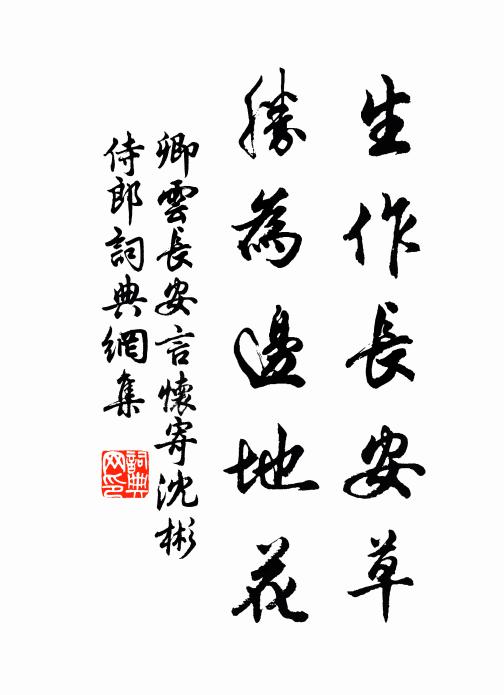 生作長安草
勝為邊地花
卿雲長安言懷寄沈彬
侍郎詞典網集
詞典网印